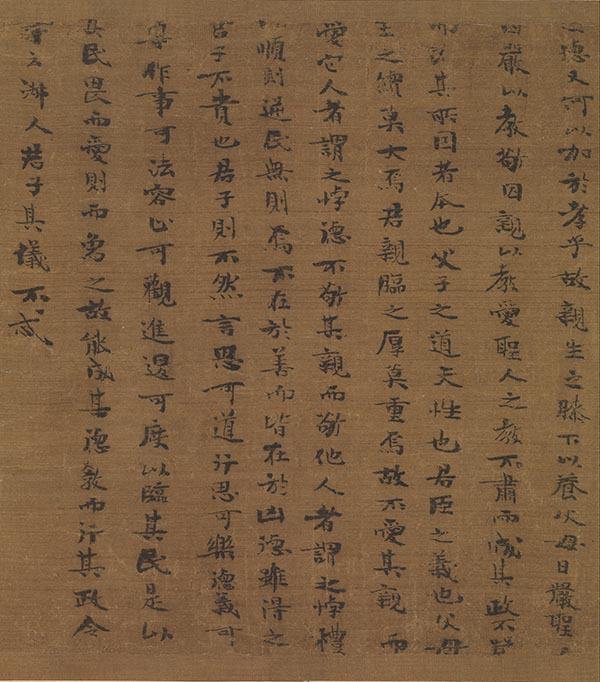 德又何以加於孝乎故親生之膝下以養父母日嚴聖
因嚴以教敬因親以教愛聖人之教不肅而成其政不嚴
而治其所因者本也父子之道天性也君臣之義也父母
生之續莫大焉君親臨之厚莫重焉故不愛其親而
愛它人者謂之悖德不敬其親而敬他人者謂之悖禮
以順則逆民無則焉不在於善而皆在於凶德雖得之
君子不貴也君子則不然言思可道行思可樂德義可
尊作事可法容止可觀進退可度以臨其民是以
其民畏而愛則而象之故能成其德教而行其政令
詩云淑人君子其儀不忒